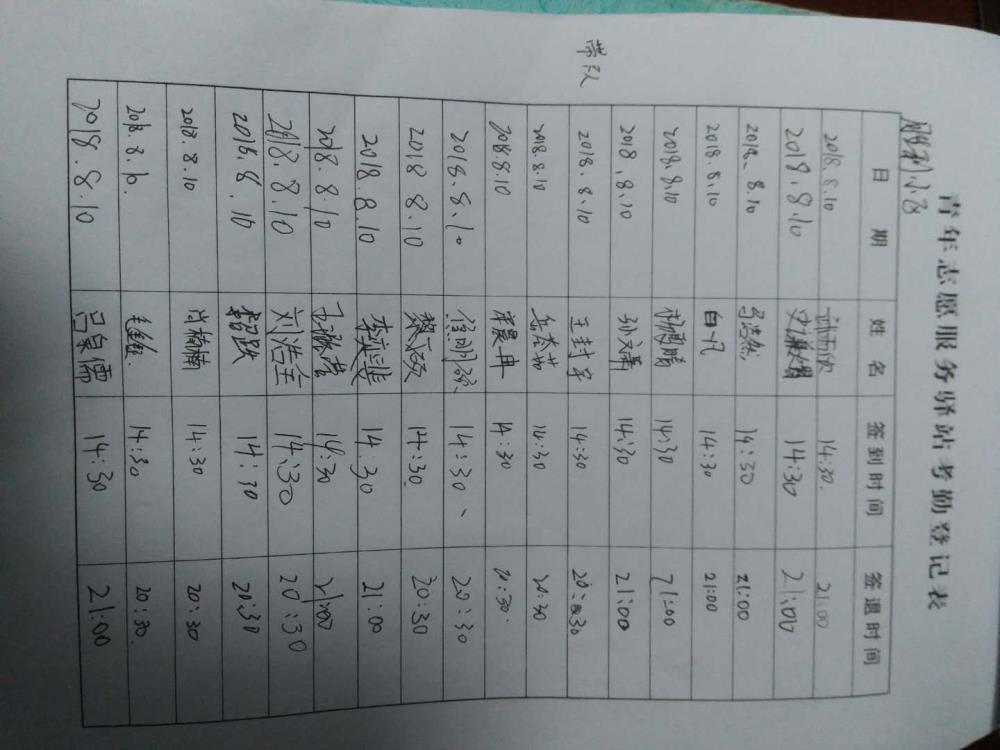 青年志愿服务驿站考勤登记表
胜利小区
日期 姓名 签到时间 签退时间
2018.8.10 14:30. 21:00
2018.8.10 14:30 21:00
2018.8.10 马浩然 14:30 21:00
2018.8.10 白凡 14:30 21:00
2018.8.10 14:30 21:00
2018.8.10 孙文靖 14:30 21:00
带队 2018.8.10 王封宇 14:30 20:30
2018.8.10 14:30 20:30
2018.8.10 14:30 20:30
2018.8.10 14:30、 20:30
2018.8.10 14:30. 20:30
2018.8.10 李奕斐 14.30 21:00
2018.8.10 14:30 21:00
2018 8.10 刘浩宇 14:30 20:30
2018.8.10 14:30 20:30
2018.8.10 肖楠楠 14:30 20:30
2018.8.10. 14:30 20:30.
2018.8.10 吕泉儒 14:30 21:00